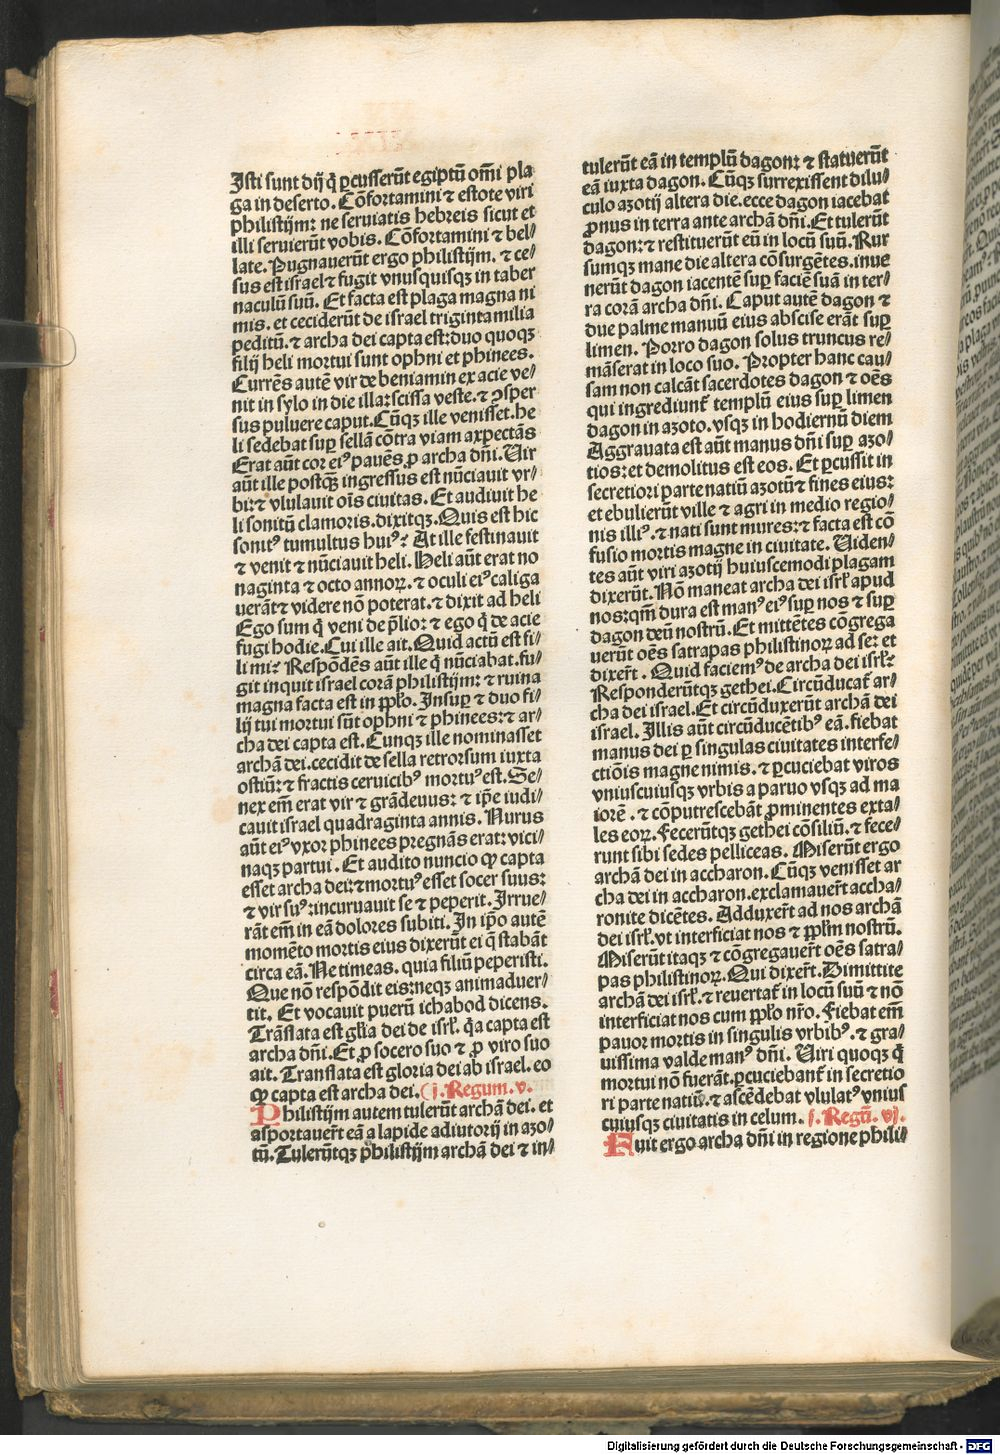 Isti sunt dij q̇ ꝑcusserūt egiptū om̄i pla
ga in deserto. Cōfortamini ⁊ estote viri
philistijm: ne seruiatis hebreis sicut et
illi seruierūt vobis. Cōfortamini ⁊ bel⸗
late. Pugnauerūt ergo philistijm. ⁊ ce⸗
sus est israel ⁊ fugit vnusquisqꝫ in taber
naculū suū. Et facta est plaga magna ni
mis. et ceciderūt de israel triginta milia
peditū. ⁊ archa dei capta est: duo quoqꝫ
filij heli mortui sunt ophni et phinees.
Currēs autē vir de beniamin ex acie ve⸗
nit in sylo in die illa: scissa veste. ⁊ ꝯsper
sus puluere caput. Cūqꝫ ille venisset. he
li sedebat suꝑ sellā cōtra viam axpectās
Erat aūt cor eiꝰ pauēs ꝓ archa dn̄i. Uir
aūt ille postqꝫ̄ ingressus est nūciauit vr⸗
bi: ⁊ vlulauit oīs ciuitas. Et audiuit he
li sonitū clamoris. dixitqꝫ. Quis est hic
sonitꝰ tumultus huiꝰ? At ille festinauit
⁊ venit ⁊ nūciauit heli. Heli aūt erat no
naginta ⁊ octo annoꝝ. ⁊ oculi eiꝰ caliga
uerāt ⁊ videre nō poterat. ⁊ dixit ad heli
Ego sum q̇ veni de p̄lio: ⁊ ego q̇ de acie
fugi hodie. Cui ille ait. Quid actū est fi⸗
li mi? Respōdēs aūt ille q̇ nūciabat. fu⸗
git inquit israel corā philistijm: ⁊ ruina
magna facta est in pp̄lo. Insuꝑ ⁊ duo fi⸗
lij tui mortui sūt ophni ⁊ phinees: ⁊ ar⸗
cha dei capta est. Cunqꝫ ille nominasset
archā dei. cecidit de sella retrorsum iuxta
ostiū: ⁊ fractis ceruicibꝰ mortuꝰ est. Se⸗
nex em̄ erat vir ⁊ grādeuus: ⁊ ip̄e iudi⸗
cauit israel quadraginta annis. Nurus
aūt eiꝰ vxor phinees pregnās erat: vici⸗
naqꝫ partui. Et audito nuncio ꝙ capta
esset archa dei: ⁊ mortuꝰ esset socer suus:
⁊ vir suꝰ: incuruauit se ⁊ peperit. Irrue⸗
rāt em̄ in eā dolores subiti. In ip̄o autē
momēto mortis eius dixerūt ei q̄ stabāt
circa eā. Ne timeas. quia filiū peperisti.
Que nō respōdit eis: neqꝫ animaduer⸗
tit. Et vocauit puerū ichabod dicens.
Trāslata est gl̄ia dei de isrl̄. q̄a capta est
archa dn̄i. Et ꝓ socero suo ⁊ ꝓ viro suo
ait. Translata est gloria dei ab israel. eo
ꝙ capta est archa dei. (j. Regum. v.
Philistijm autem tulerūt archā dei. et
asportauer̄t eā a lapide adiutorij in azo⸗
tū. Tulerūtqꝫ philistijm archā dei ⁊ in⸗
tulerūt eā in templū dagon: ⁊ statuerūt
eā iuxta dagon. Cūqꝫ surrexissent dilu⸗
culo azotij altera die. ecce dagon iacebat
ꝓnus in terra ante archā dn̄i. Et tulerūt
dagon: ⁊ restituerūt eū in locū suū. Rur
sumqꝫ mane die altera cōsurgētes. inue
nerūt dagon iacentē suꝑ faciē suā in ter⸗
ra corā archa dn̄i. Caput autē dagon ⁊
due palme manuū eius abscise erāt suꝑ
limen. Porro dagon solus truncus re⸗
māserat in loco suo. Propter hanc cau⸗
sam non calcāt sacerdotes dagon ⁊ oēs
qui ingrediunt̄ templū eius suꝑ limen
dagon in azoto. vsqꝫ in hodiernū diem
Aggrauata est aūt manus dn̄i suꝑ azo⸗
tios: et demolitus est eos. Et ꝑcussit in
secretiori parte natiū azotū ⁊ fines eius:
et ebulierūt ville ⁊ agri in medio regio⸗
nis illiꝰ. ⁊ nati sunt mures: ⁊ facta est cō
fusio mortis magne in ciuitate. Uiden⸗
tes aūt viri azotij huiuscemodi plagam
dixerūt. Nō maneat archa dei isrl̄ apud
nos: qm̄ dura est manꝰ eiꝰ suꝑ nos ⁊ suꝑ
dagon deū nostrū. Et mittētes cōgrega
uerūt oēs satrapas philistinoꝝ ad se: et
dixer̄t. Quid faciemꝰ de archa dei isrl̄?
Responderūtqꝫ gethei. Circūducat̄ ar⸗
cha dei israel. Et circūduxerūt archā dei
israel. Illis aūt circūducētibꝰ eā. fiebat
manus dei ꝑ singulas ciuitates interfe⸗
ctiōis magne nimis. ⁊ ꝑcuciebat viros
vniuscuiusqꝫ vrbis a paruo vsqꝫ ad ma
iorē. ⁊ cōputrescebāt ꝓminentes exta⸗
les eoꝝ. Fecerūtqꝫ gethei cōsiliū. ⁊ fece⸗
runt sibi sedes pelliceas. Miserūt ergo
archā dei in accharon. Cūqꝫ venisset ar
cha dei in accharon. exclamauer̄t accha⸗
ronite dicētes. Adduxer̄t ad nos archā
dei isrl̄. vt interficiat nos ⁊ pp̄lm nostrū.
Miserūt itaqꝫ ⁊ cōgregauer̄t oēs satra⸗
pas philistinoꝝ. Qui dixer̄t. Dimittite
archā dei isrl̄. ⁊ reuertat̄ in locū suū ⁊ nō
interficiat nos cum pp̄lo nr̄o. Fiebat em̄
pauor mortis in singulis vrbibꝰ. ⁊ gra⸗
uissima valde manꝰ dn̄i. Uiri quoqꝫ q̇
mortui nō fuerāt. ꝑcuciebant̄ in secretio
ri parte natiū. ⁊ ascēdebat vlulatꝰ vnius
cuiusqꝫ ciuitatis in celum. j. Regū. vj.
Fuit ergo archa dn̄i in regione phili⸗
Digitalisierung gefördert durch die Deutsche Forschungsgemeinschaft - DFG